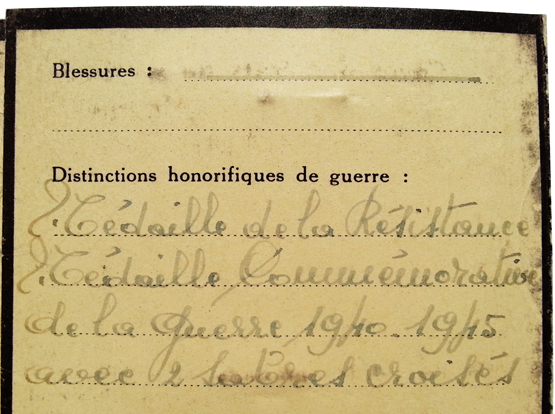 Blessures :
Distinctions honorifiques de guerre :
Médaille de la Résistance
Médaille Commémorative
de la guerre 1940-1945
avec 2 sabres croisés